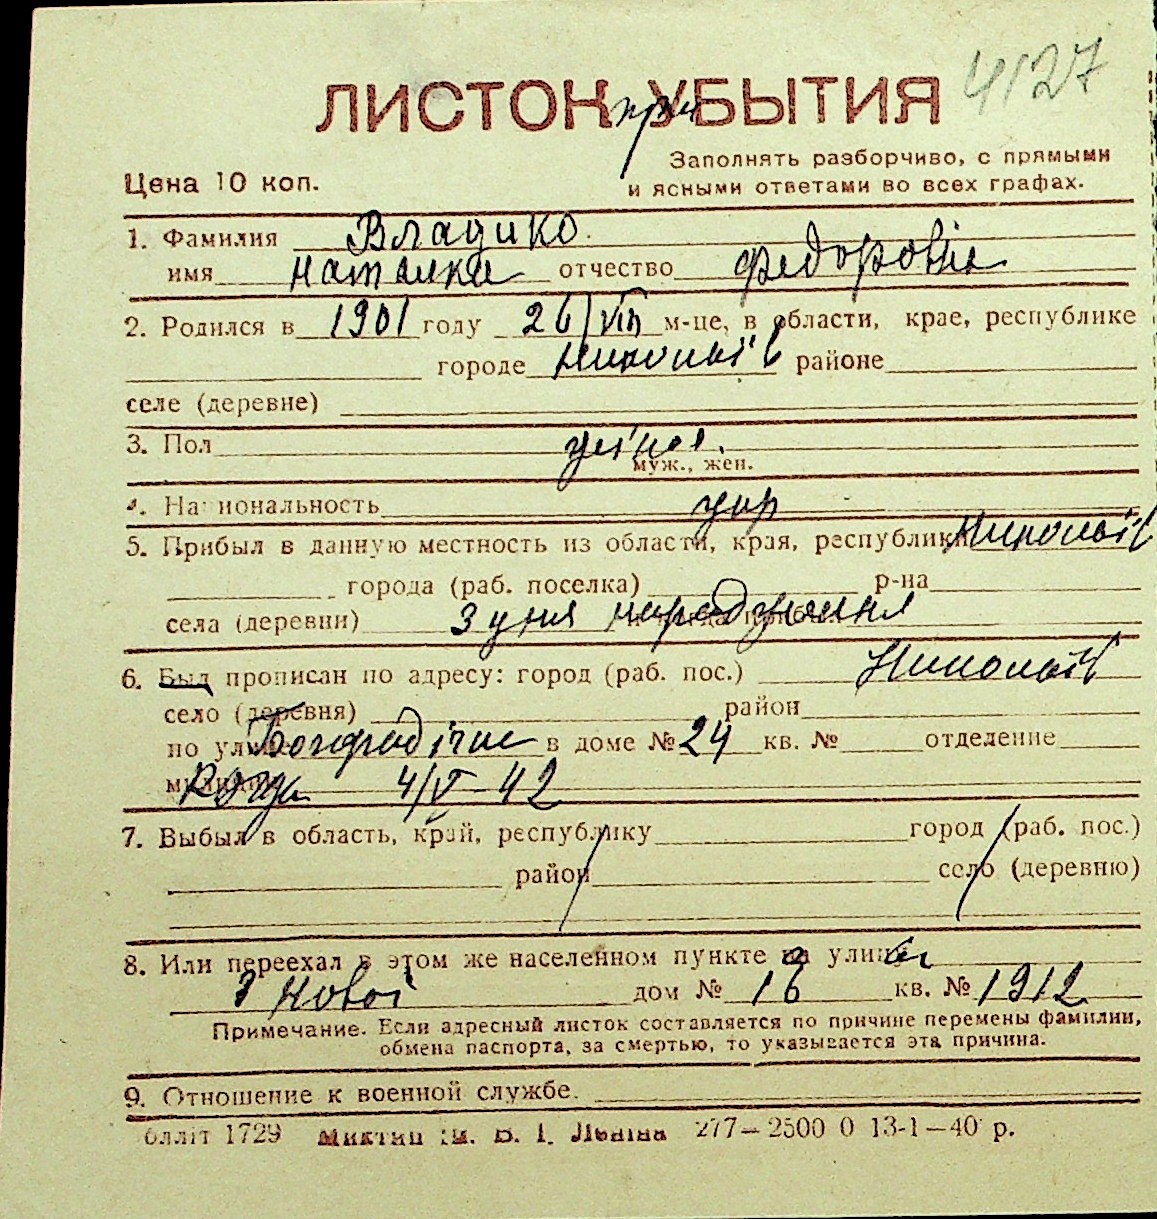 4127
ЛИСТОК при УБЫТИЯ
Заполнять разборчиво, с прямыми
Цена 10 коп. и ясными ответами во всех графах.
1. Фамилия Владико
имя Наталка отчество Федоровна
2. Родился в 1901 году 26/VIII м-це, в области, крае, республике
городе Миколаїв районе
селе (деревне)
3. Пол жіноч.
муж., жен.
4. Национальность укр
5. Прибыл в данную местность из области, края, республики Миколаїв
города (раб. поселка) р-на
села (деревни) З дня народження
6. Был прописан по адресу: город (раб. пос.) Миколаїв
село (деревня) район
по улице в доме № 24 кв. № отделение
милиции 4/V-42
7. Выбыл в область, край, республику город (раб. пос.)
район село (деревню)
8. Или переехал в этом же населенном пункте на улицу
З Нової дом № 16 кв. № 1912
Примечание. Если адресный листок составляется по причине перемены фамилии,
обмена паспорта, за смертью, то указывается эта причина.
9. Отношение к военной службе.
блліт 1729 ім. В. І. Леніна 277—2500 0 13-1—40 р.